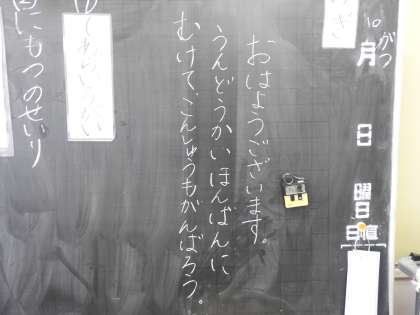 10がつ
月 日 曜日
日直
おはようございます。
うんどうかいほんばんに
むけて、こんしゅうもがんばろう。
①てあらいうがい
②にもつのせいり